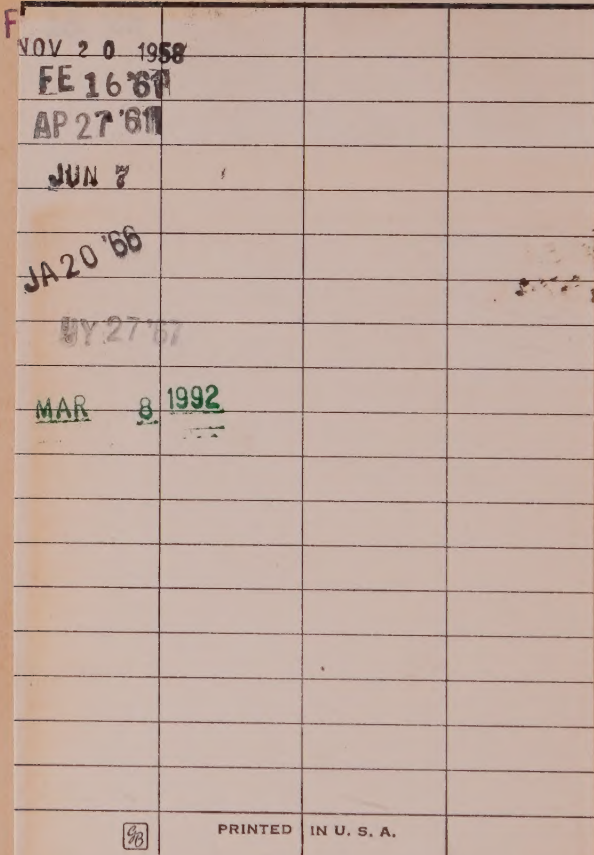 F
NOV 20 1958
FE 16 '61
AP 27 '61
JUN 7
JA 20 '66
MY 27 '67
MAR 8 1992
GB PRINTED IN U. S. A.